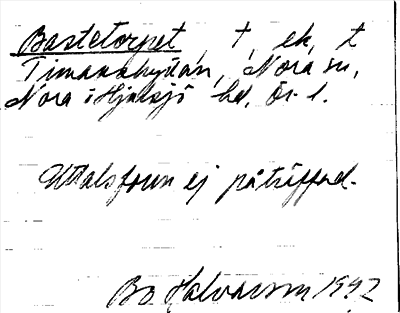 Bastetorpet, t, ek, t
Timanshyttan, Nora sn,
Nora i Hjulsjö hd, Ör. l.
Uttalsform ej påträffad.
Bo Halvarson 1942